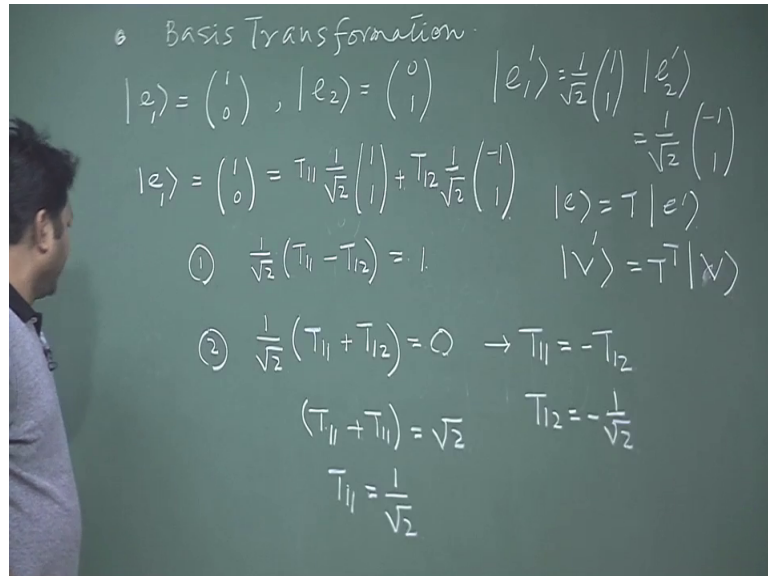 • Basis Transformation.
|e₁⟩ = (1 0), |e₂⟩ = (0 1) |e₁'⟩ = 1/√2 (1 1) |e₂'⟩
= 1/√2 (-1 1)
|e₁⟩ = (1 0) = T₁₁ 1/√2 (1 1) + T₁₂ 1/√2 (-1 1)
|e⟩ = T |e'⟩
① 1/√2 (T₁₁ - T₁₂) = 1.
|V'⟩ = Tᵀ |V⟩
② 1/√2 (T₁₁ + T₁₂) = 0 → T₁₁ = -T₁₂
(T₁₁ + T₁₁) = √2
T₁₂ = -1/√2
T₁₁ = 1/√2